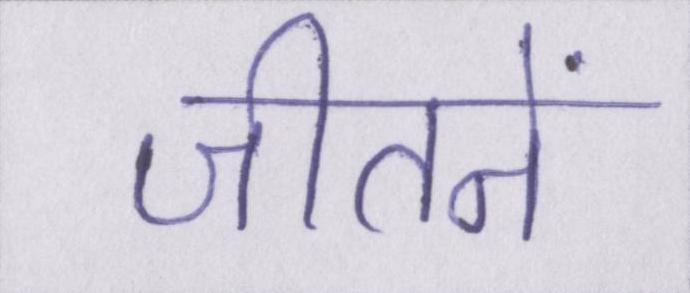 जीतनें